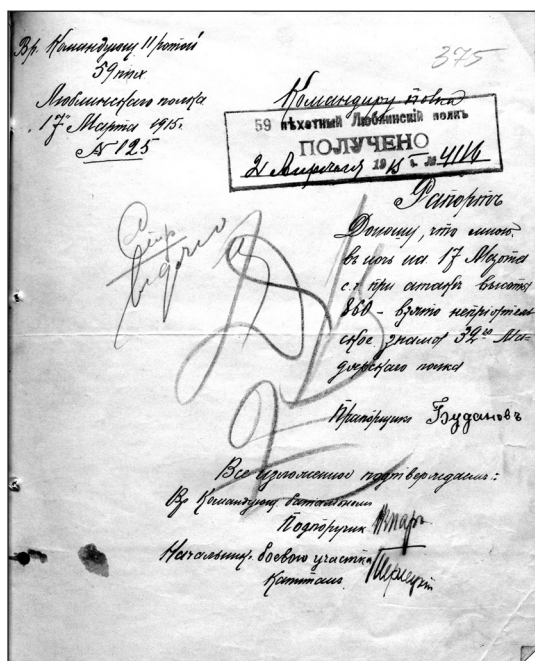 Вр. Командующ. 11 ротой
59 пѣх
Люблинскаго полка
"17" Марта 1915 г.
№ 125
375
Командиру полка
59 пѣхотный Люблинскій полкъ
ПОЛУЧЕНО
2 Апрѣля 1915 г. № 4116
Рапортъ
Доношу, что мною,
въ ночь на 17 Марта
с.г. при атакѣ высоты
860 - взято непріятель
ское знамя 32го Ма-
дьярскаго полка
Прапорщикъ Будановъ
Все изложенное подтверждаемъ:
Вр Командующ. батальономъ
Подпоручик
Начальник боевого участка
Капитанъ